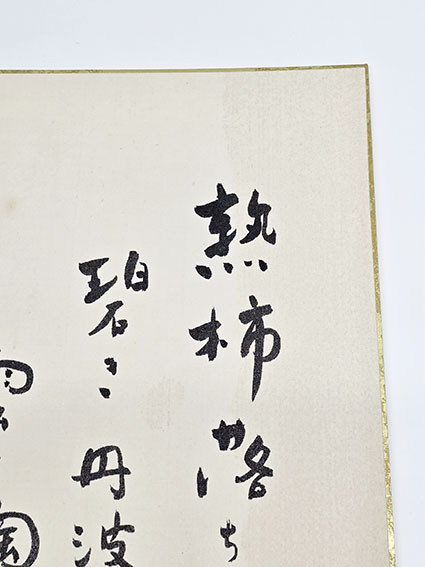 熟柿落ち
碧き丹波